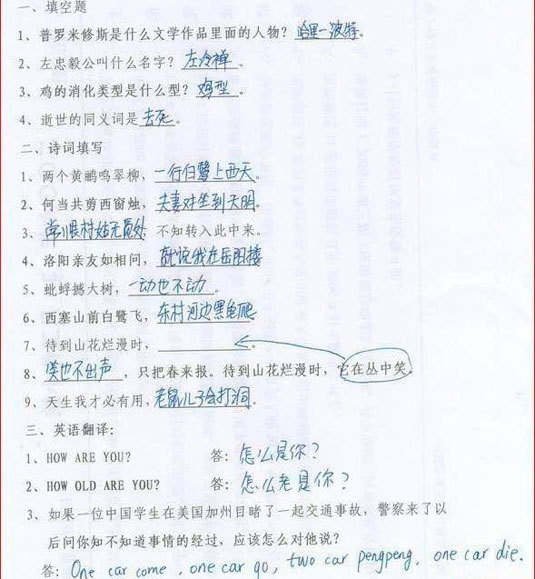 一、填空题
1、普罗米修斯是什么文学作品里面的人物？哈里-波特。
2、左忠毅公叫什么名字？左冷禅。
3、鸡的消化类型是什么型？鸡型。
4、逝世的同义词是去死。
二、诗词填写
1、两个黄鹂鸣翠柳，一行白鹭上西天。
2、何当共剪西窗烛，夫妻对坐到天明。
3、常恨村姑无觅处 不知转入此中来。
4、洛阳亲友如相问，就说我在岳阳楼
5、蚍蜉撼大树，一动也不动。
6、西塞山前白鹭飞，东村河边黑龟爬
7、待到山花烂漫时，________。
8、俟也不出声，只把春来报。待到山花烂漫时，它在丛中笑。
9、天生我才必有用，老鼠儿子会打洞。
三、英语翻译：
1、HOW ARE YOU? 答：怎么是你？
2、HOW OLD ARE YOU? 答：怎么老是你？
3、如果一位中国学生在美国加州目睹了一起交通事故，警察来了以
后问你知不知道事情的经过，应该怎么对他说？
答：One car come, one car go, two car pengpeng, one car die.